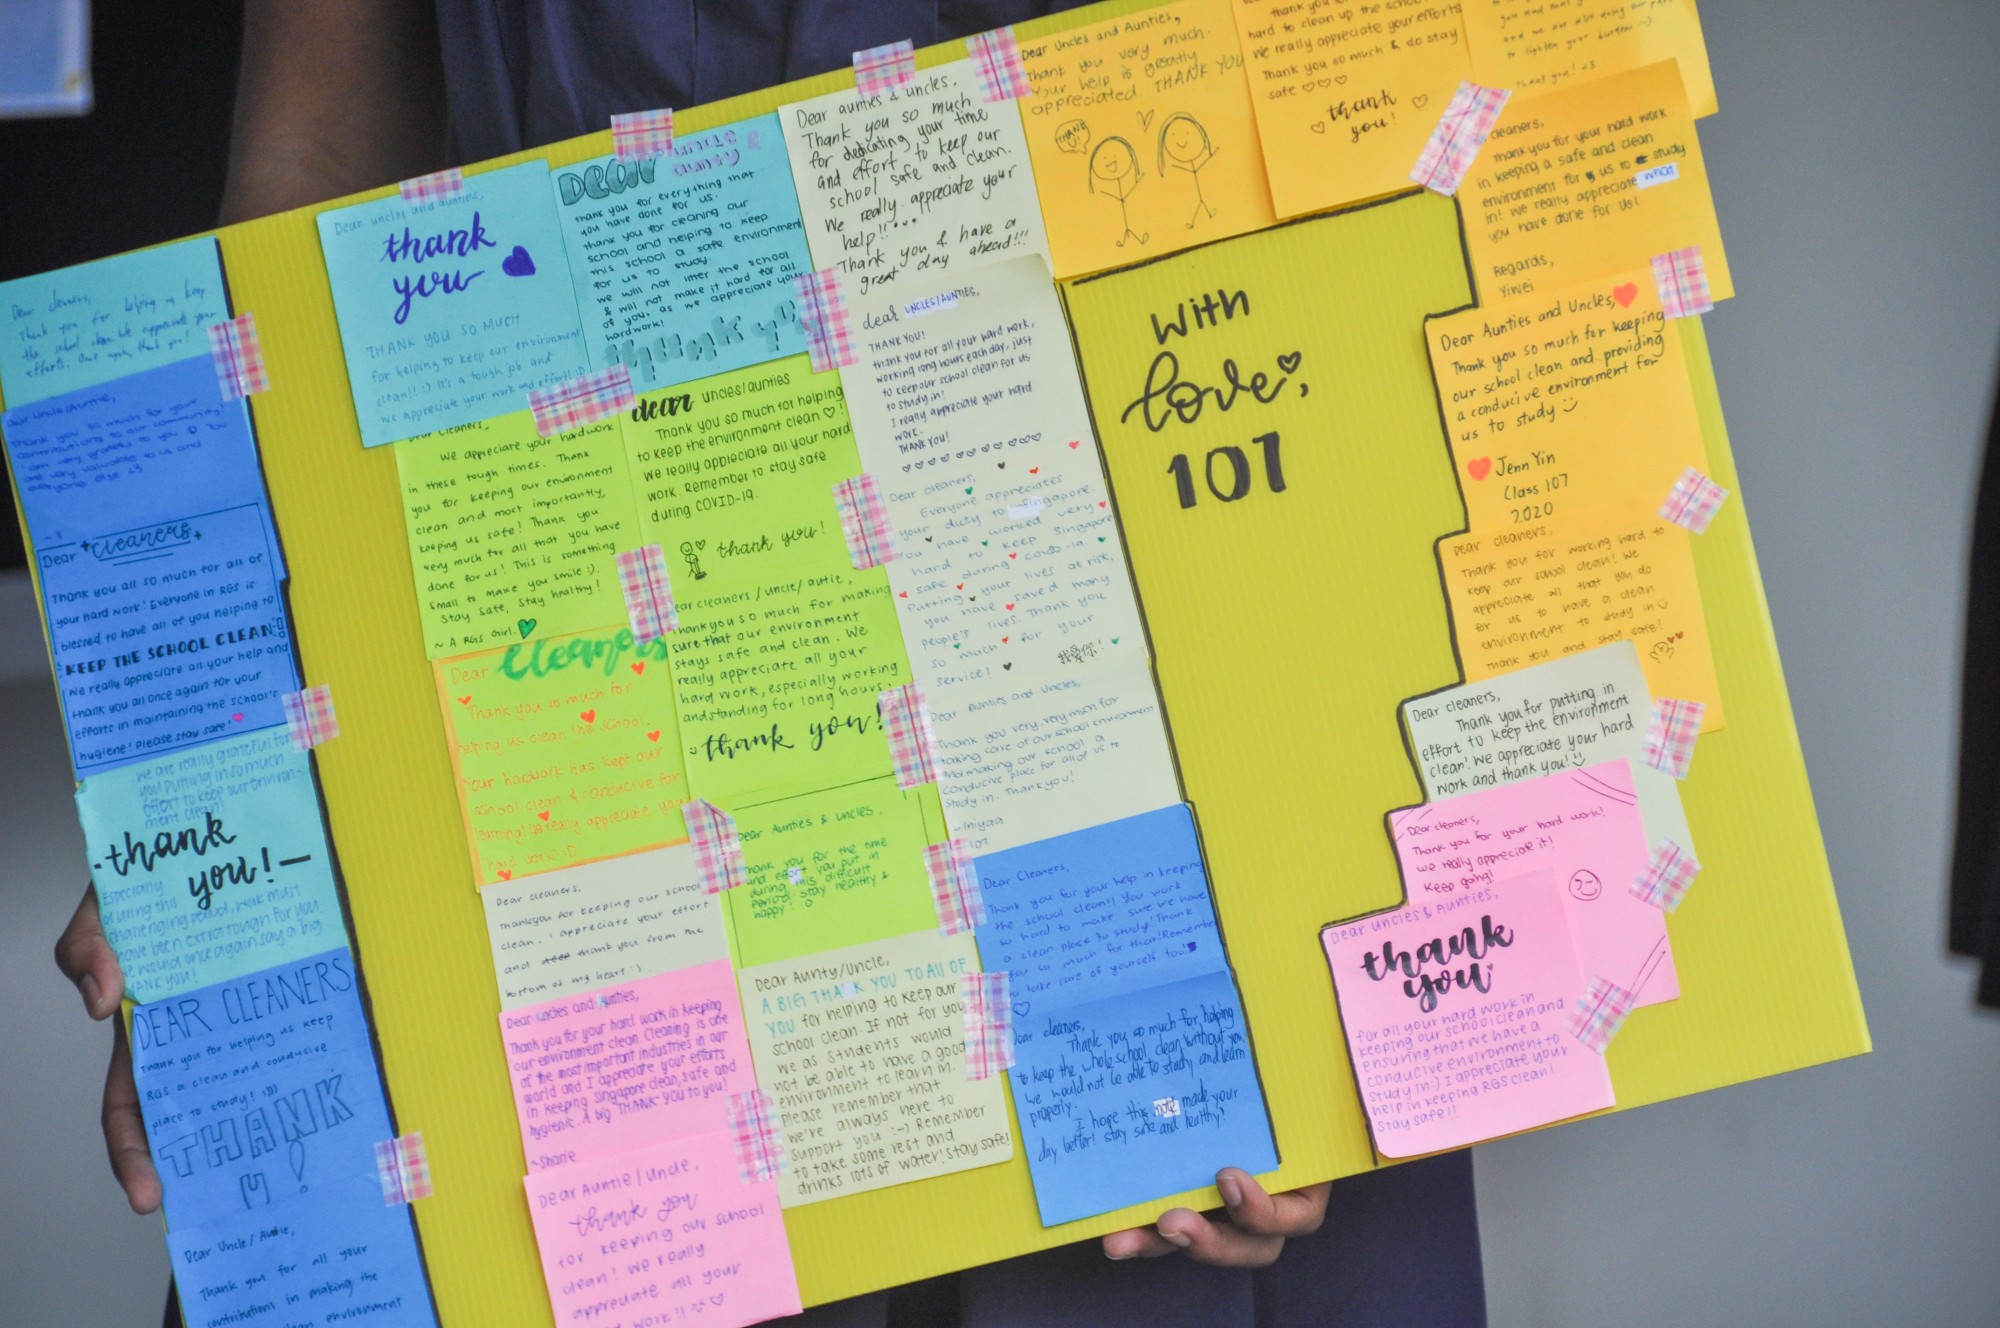 Dear cleaners,
Thank you for helping us keep
the school clean. We appreciate your
efforts. Once again, thank you!
Dear Uncle/Auntie,
Thank you so much for your
contributions to our community!
I am very grateful to you You
are very valuable to us and
everyone else <3
Dear cleaners
Thank you all so much for all of
your hard work! Everyone in RGS is
blessed to have all of you helping to
KEEP THE SCHOOL CLEAN!
We really appreciate all your help and
thank you all once again for your
efforts in maintaining the school's
hygiene! Please stay safe!
We are really grateful for
you putting in so much
effort to keep our environ-
ment clean!
-thank
you!-
Especially
during this
challenging period, work must
have been extra tough for you
We would once again say a big
THANK YOU!
DEAR CLEANERS
Thank you for helping us keep
RGS a clean and conducive
place to study! :)))
THANK
U!
Dear Uncle/Auntie,
Thank you for all your
contributions in making the
clean environment
Dear uncles and aunties,
thank
you
THANK YOU SO MUCH
for helping to keep our environment
clean!! :) It's a tough job and
we appreciate your work and effort! :D
DEAR UNCLE &
AUNTY
thank you for everything that
you have done for us.
thank you for cleaning our
school and helping to keep
this school a safe environment
for us to study.
we will not litter the school
& will not make it hard for all
of you, as we appreciate your
hardwork!
thank you
Dear Cleaners,
We appreciate your hardwork
in these tough times. Thank
you for keeping our environment
clean and most importantly,
keeping us safe! Thank you
very much for all that you have
done for us! This is something
small to make you smile :).
Stay Safe, Stay healthy!
~ A RGS Girl.
dear uncles/aunties
Thank you so much for helping
to keep the environment clean ♡!
We really appreciate all your hard
work. Remember to stay safe
during COVID-19.
thank you!
Dear cleaners
Thank you so much for
helping us clean the school.
Your hardwork has kept our
school clean & conducive for
learning! We really appreciate your
hard work! :D
Dear cleaners/uncle/autie,
Thank you so much for making
sure that our environment
stays safe and clean. We
really appreciate all your
hard work, especially working
and standing for long hours.
thank you!
Dear Aunties & uncles,
Thank you for the time
and effort you put in
during this difficult
period. Stay healthy &
happy! :D
Dear cleaners,
Thankyou for keeping our school
clean. I appreciate your effort
and thank you from the
bottom of my heart :)
Dear uncles and aunties,
Thank you for your hard work in keeping
our environment clean. Cleaning is one
of the most important industries in our
world and I appreciate your efforts
in keeping singapore clean, safe and
hygienic. A big THANK YOU to you!
~Sharie
Dear Auntie/Uncle,
thank you
for keeping our school
clean! We really
appreciate all your
work!!
Dear Aunty/Uncle,
A BIG THANK YOU TO ALL OF
YOU for helping to keep our
school clean. If not for you
we as students would
not be able to have a good
environment to learn in.
Please remember that
we're always here to
support you :-) Remember
to take some rest and
drinks lots of water! Stay safe!
Dear aunties & uncles,
Thank you so much
for dedicating your time
and effort to keep our
school safe and clean.
We really appreciate your
help!!
Thank you & have a
great day ahead!!!
dear UNCLES/AUNTIES,
THANK YOU!
thank you for all your hard work,
working long hours each day, just
to keep our school clean for us
to study in!
I really appreciate your hard
work.
THANK YOU!
♡♡♡♡♡♡♡♡♡♡
Dear cleaners,
Everyone appreciates
your duty to Singapore.
You have worked very
hard to keep Singapore
safe during covid-19.
Putting your lives at risk,
you have saved many
people's lives. Thank you
so much for your
service!
我爱你!
Dear Aunties and Uncles,
Thank you very, very much for
taking care of our school environment
and making our school a
conducive place for all of us to
study in. Thank you!
~ Iniyaa
107
Dear Cleaners,
Thank you for your help in keeping
the school clean!! You work
so hard to make sure we have
a clean place to study! Thank
you so much for that! Remember
to take care of yourself too!
Dear cleaners,
Thank you so much for helping
to keep the whole school clean. Without you,
we would not be able to study and learn
properly.
I hope this note made your
day better! stay safe and healthy!
Dear Uncles and Aunties,
Thank you very much.
Your help is greatly
appreciated. THANK YOU
THANK
YOU!
hard to clean up the school.
We really appreciate your efforts
Thank you so much & do stay
safe ♡♡♡
♡ thank ♡
you!
and we are also doing our part
to lighten your burden :-)
Thank you! <3
cleaners,
Thank you for your hard work
in keeping a safe and clean
environment for us to study
in! We really appreciate what
you have done for us!
Regards,
Yiwei
Dear Aunties and Uncles,
Thank you so much for keeping
our school clean and providing
a conducive environment for
us to study
Jenn Yin
Class 107
2020
Dear cleaners,
Thank you for working hard to
keep our school clean! We
appreciate all that you do
for us to have a clean
environment to study in
Thank you and stay safe!
Dear cleaners,
Thank you for putting in
effort to keep the environment
clean! We appreciate your hard
work and thank you!
Dear cleaners,
Thank you for your hard work!
We really appreciate it!
Keep going!
Dear Uncles & Aunties,
thank
you
for all your hard work in
keeping our school clean and
ensuring that we have a
conducive environment to
study in :) I appreciate your
help in keeping RGS clean!
Stay safe!!
with
love,
107